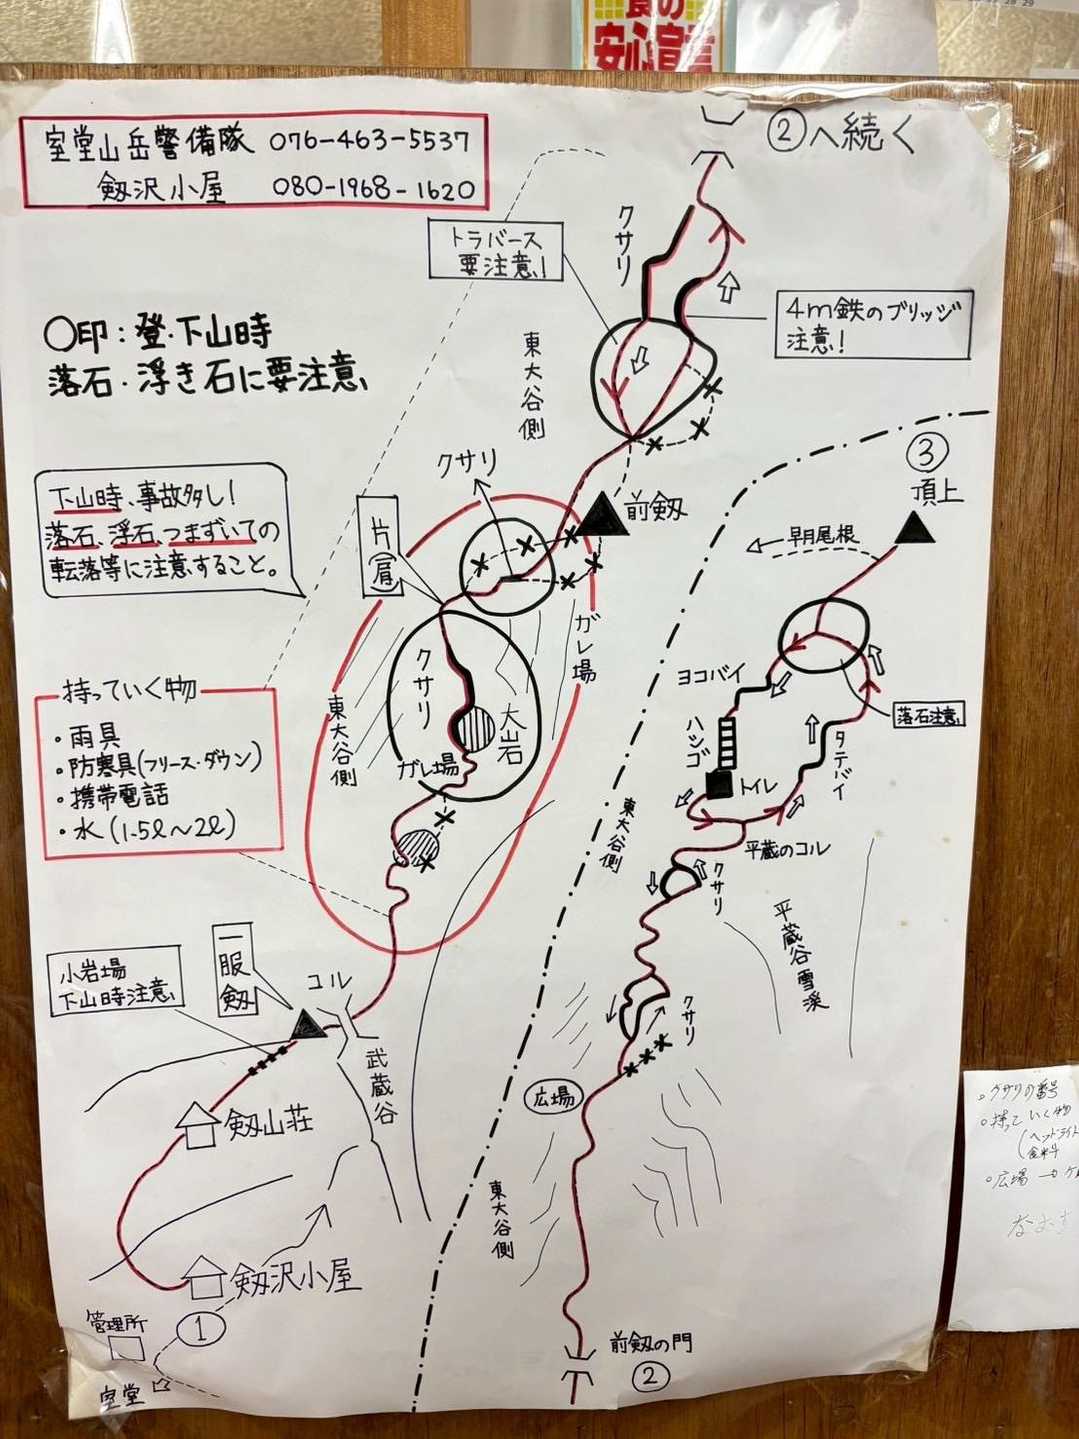 食の
安心宣言
室堂山岳警備隊 076-463-5537
剱沢小屋 080-1968-1620
②へ続く
クサリ
トラバース
要注意!
4m鉄のブリッジ
注意!
〇印:登・下山時
落石・浮き石に要注意
東大谷側
クサリ
前剱
③
頂上
早月尾根
下山時、事故多し!
落石、浮石、つまずいての
転落等に注意すること。
片(肩)
ガレ場
クサリ
大岩
東大谷側
ガレ場
ヨコバイ
ハシゴ
トイレ
落石注意
タテバイ
平蔵のコル
クサリ
東大谷側
平蔵谷雪渓
持っていく物
・雨具
・防寒具(フリース・ダウン)
・携帯電話
・水(1.5ℓ〜2ℓ)
小岩場
下山時注意
一服剱
コル
武蔵谷
クサリ
広場
剱山荘
東大谷側
剱沢小屋
管理所
①
室堂
前剱の門
②
。クサリの番号
。持っていく物
(ヘッドライト
食料
。広場